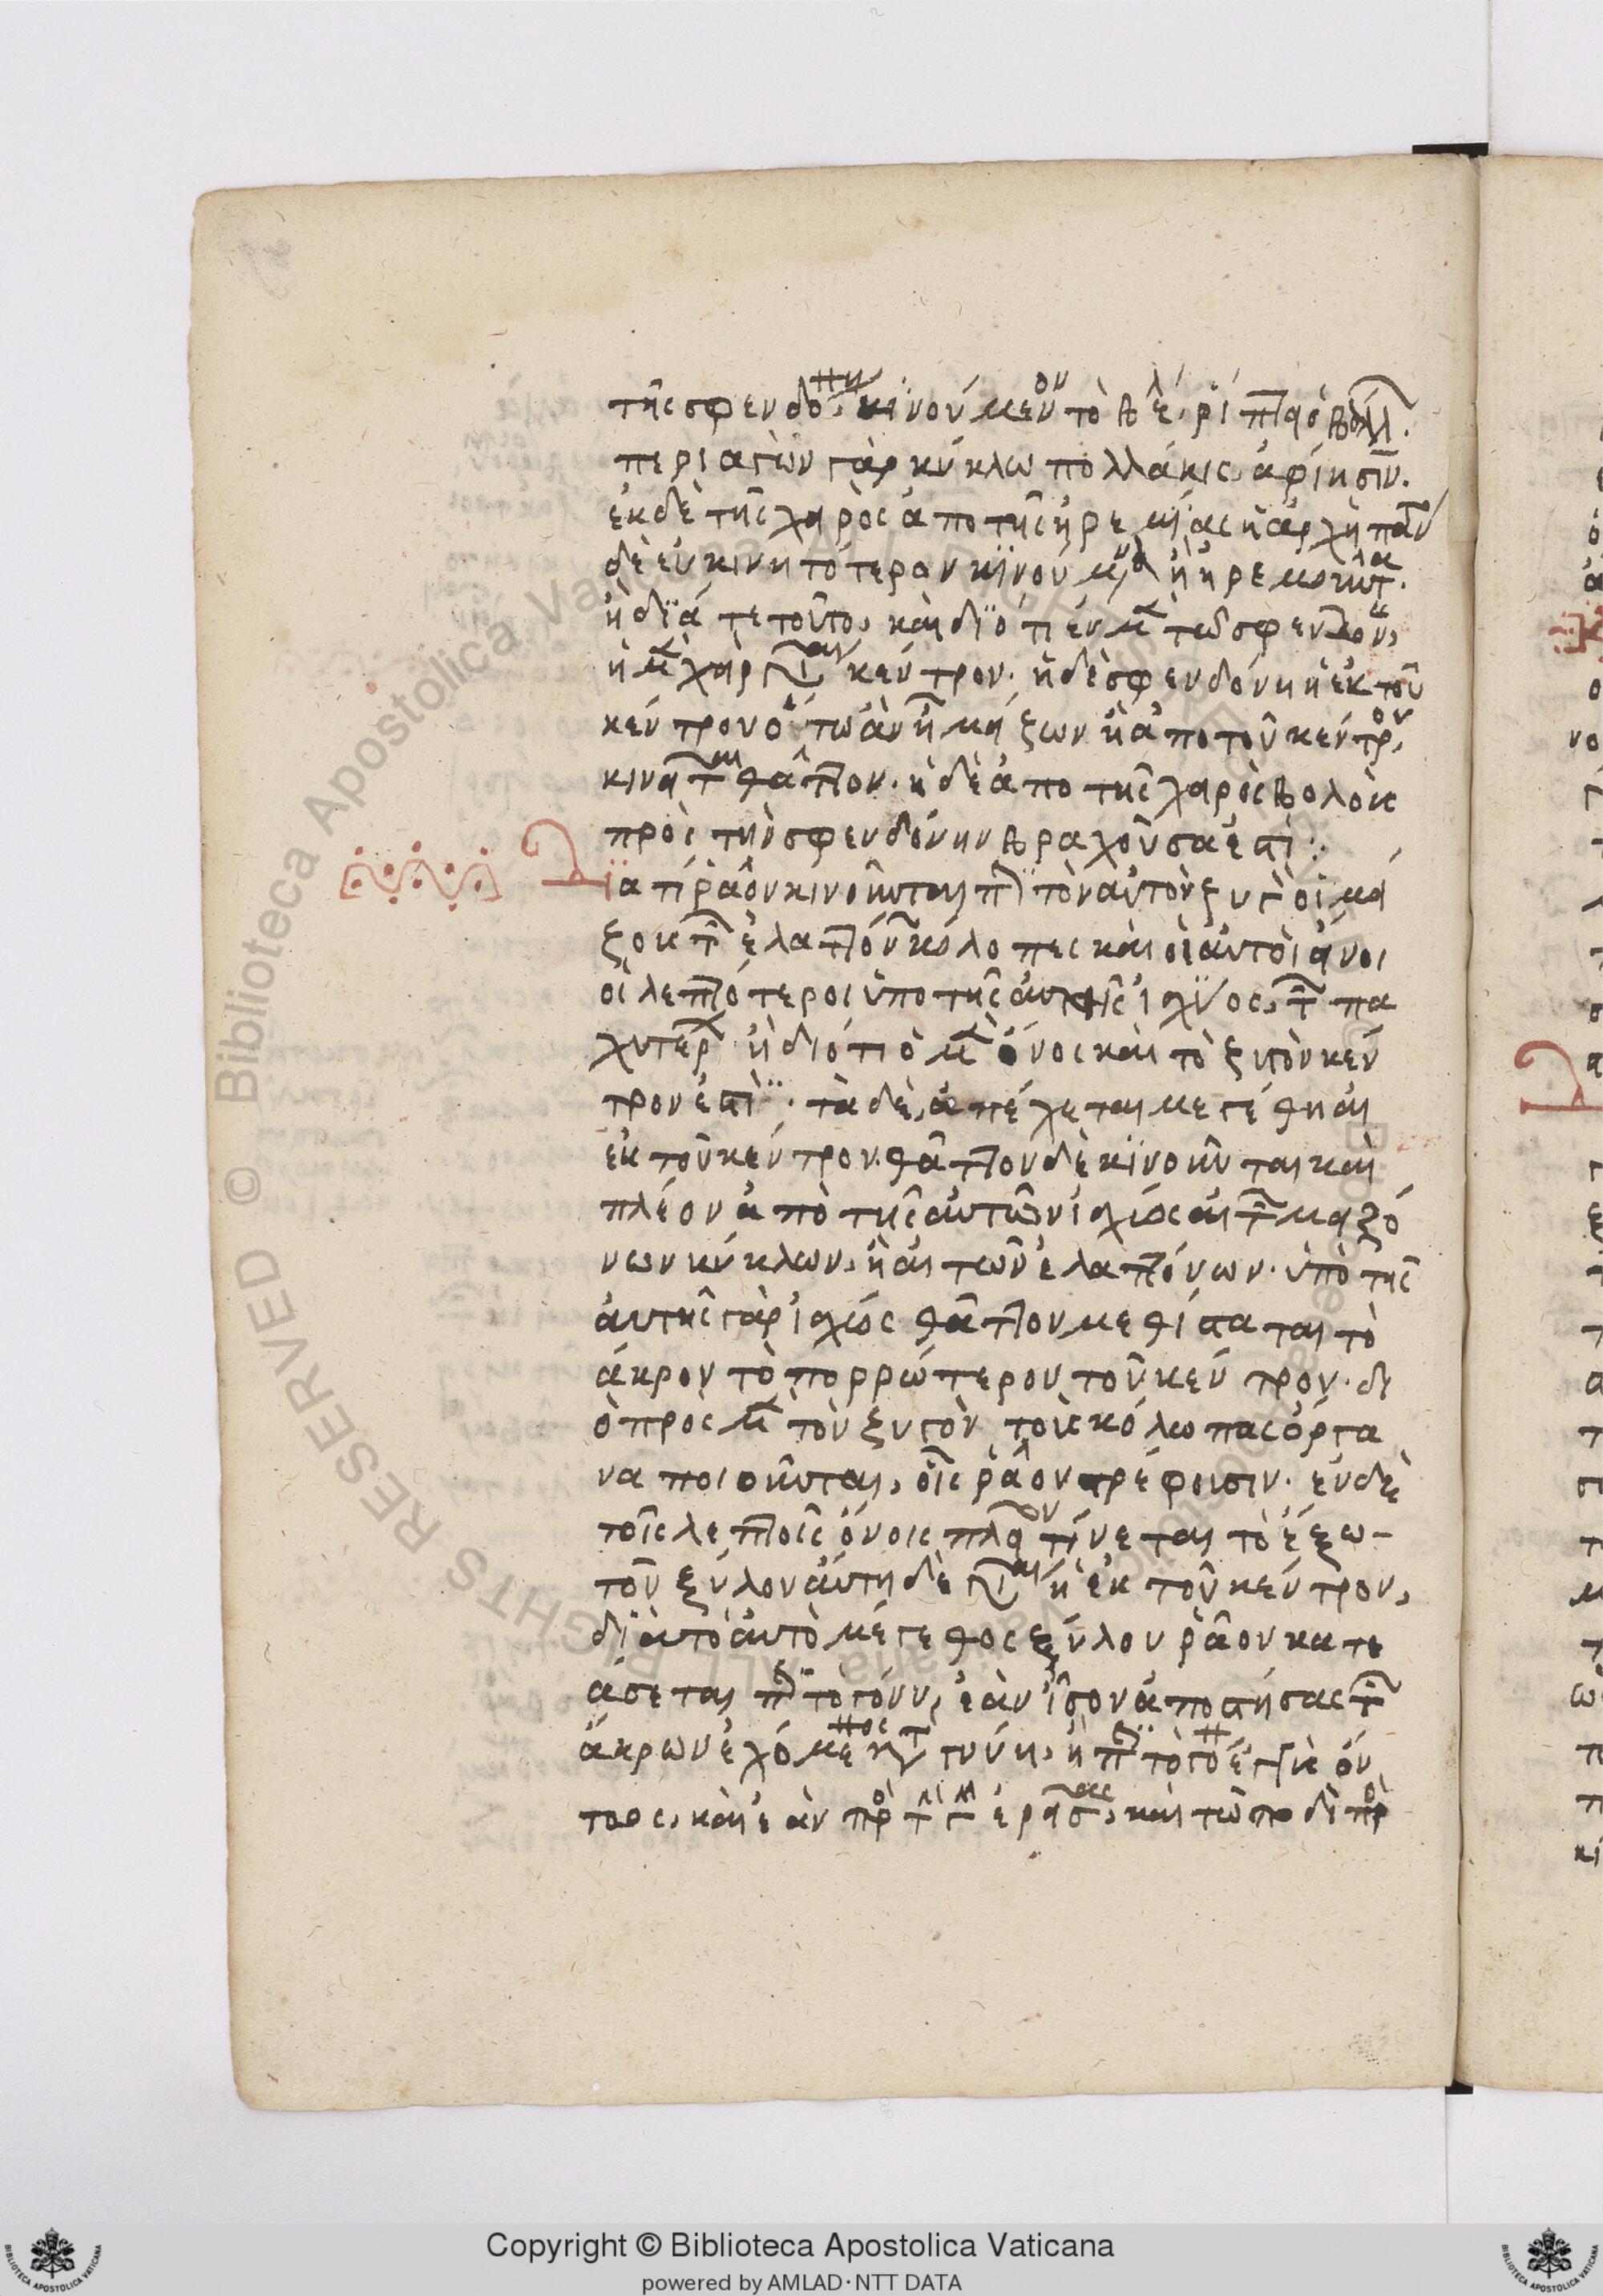 τῆς σφενδό, κινούμενον τὸ βέλ. ῥίπτει ὁ βάλλ.
περιαγὼν γὰρ κύκλω πολλάκις, ἀφίησιν.
ἐκ δὲ τῆς χειρὸς ἀπο τῆς ἠρεμίας ἡ ἀρχὴ πάν
δὲ εὐκινητότερον κινούμενα ἢ ἠρεμοῦντα.
ἢ διά τε τοῦτο, καὶ διότι ἐν μὲν τῶ σφενδονᾶν,
ἡ μὲν χεὶρ γίνεται κέντρον. ἡ δὲ σφενδόνη ἡ ἐκ τοῦ
κέντρου ὅσω ἂν ᾖ μείζων ἡ ἀπο τοῦ κέντρου,
κινεῖται θᾶττον. ἡ δὲ ἀπο τῆς χειρὸς βολὴ ὡς
πρὸς τὴν σφενδόνην βραχοῦσα ἐστί:
Διατί ῥᾶον κινοῦνται περὶ τὸν αὐτὸν ζυγὸ οἱ μεί
ζους τῶν ἐλαττόνων κόλοπες καὶ οἱ αὐτοὶ ὄνοι
οἱ λεπτότεροι ὑπο τῆς αὐτῆς ἰσχύος, τῶν πα
χυτέρων. ἢ διότι ὁ μὲν ὄνος καὶ τὸ ζυγὸν κέν
τρον ἐστί. τὰ δὲ, ἀπέχεται μεγέθη αἱ
ἐκ τοῦ κέντρου. θᾶττον δὲ κινοῦνται καὶ
πλέον ἀπὸ τῆς αὐτῶν ἰσχύος αἱ τῶν μειζό
νων κύκλων, ἢ αἱ τῶν ἐλαττόνων. ὑπὸ τῆς
αὐτῆς γὰρ ἰσχύος θᾶττον μεθίσταται τὸ
ἄκρον τὸ πορρώτερον τοῦ κέντρου. δι
ὸ προς μὲν τὸν ζυγὸν τοὺς κόλωπας ὄργα
να ποιοῦνται, οἷς ῥᾶον στρέφουσιν. ἐν δὲ
τοῖς λεπτοῖς ὄνοις πλεῖον γίνεται τὸ ἔξω
τοῦ ξύλου αὕτη δὲ γίνεται ἡ ἐκ τοῦ κέντρου,
διὰ τὸ αὐτὸ μέγεθος ξύλου ῥᾶον κατε
άσεται περὶ τὸ γόνυ, ἐὰν ἴσον ἀποστήσας τῶν
ἄκρων ἐχόμενος, ἢ περὶ τὸ γό ἐγγὺς ὄν
τος, καὶ ἐὰν πρὸς τὴν γῆν ἐρείσας, καὶ τῶ ποδὶ προ